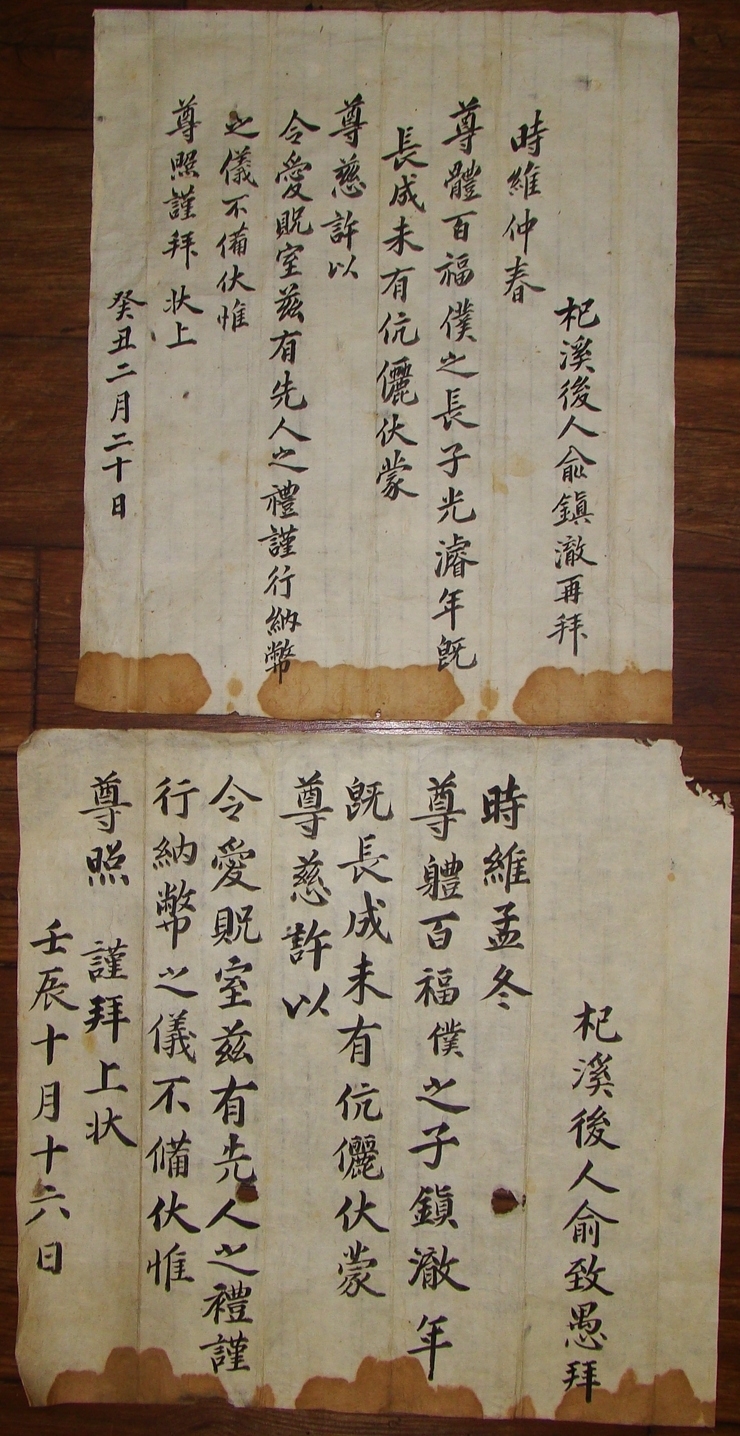 杞溪後人俞鎭澈再拜
時維仲春
尊體百福僕之長子光濬年旣
長成未有伉儷伏蒙
尊慈許以
令愛貺室兹有先人之禮謹行納幣
之儀不備伏惟
尊照謹拜 狀上
癸丑二月二十日
杞溪後人俞致愚拜
時維孟冬
尊軆百福僕之子鎭澈年
旣長成未有伉儷伏蒙
尊慈許以
令愛貺室兹有先人之禮謹
行納幣之儀不備伏惟
尊照 謹拜上狀
壬辰十月十六日